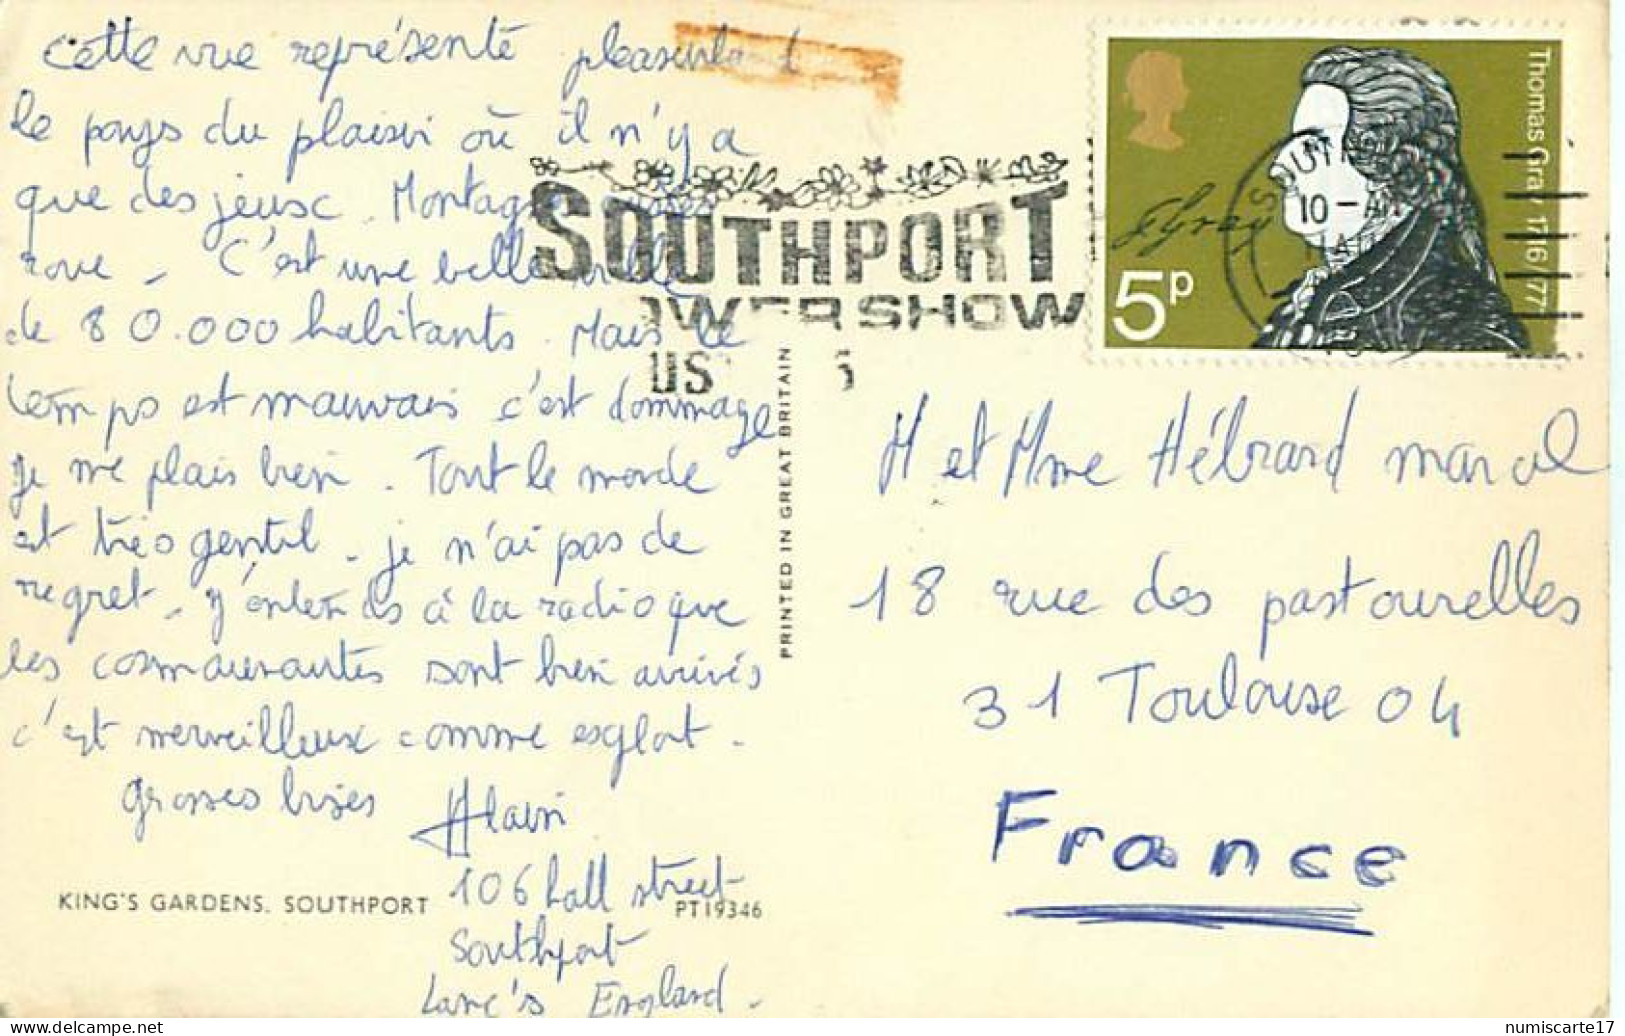 Cette vue représente pleasurland
le pays du plaisir où il n'y a
que des jeux. Montagnes russes
roue - C'est une belle ville
de 80.000 habitants. Mais le
temps est mauvais c'est dommage
je me plais bien. Tout le monde
est très gentil - je n'ai pas de
regret - j'entends à la radio que
les cosmaunautes sont bien arrivés
c'est merveilleux comme exploit -
Grosses bises
Alain
106 hall street
Southport
Lanc's England -
KING'S GARDENS. SOUTHPORT
PT19346
PRINTED IN GREAT BRITAIN
SOUTHPORT
SHOW
Thomas Gray 1716/771
T Gray
5p
10-AM
M et Mme Hébrard marcel
18 rue des pastourelles
31 Toulouse 04
France
numiscarte17